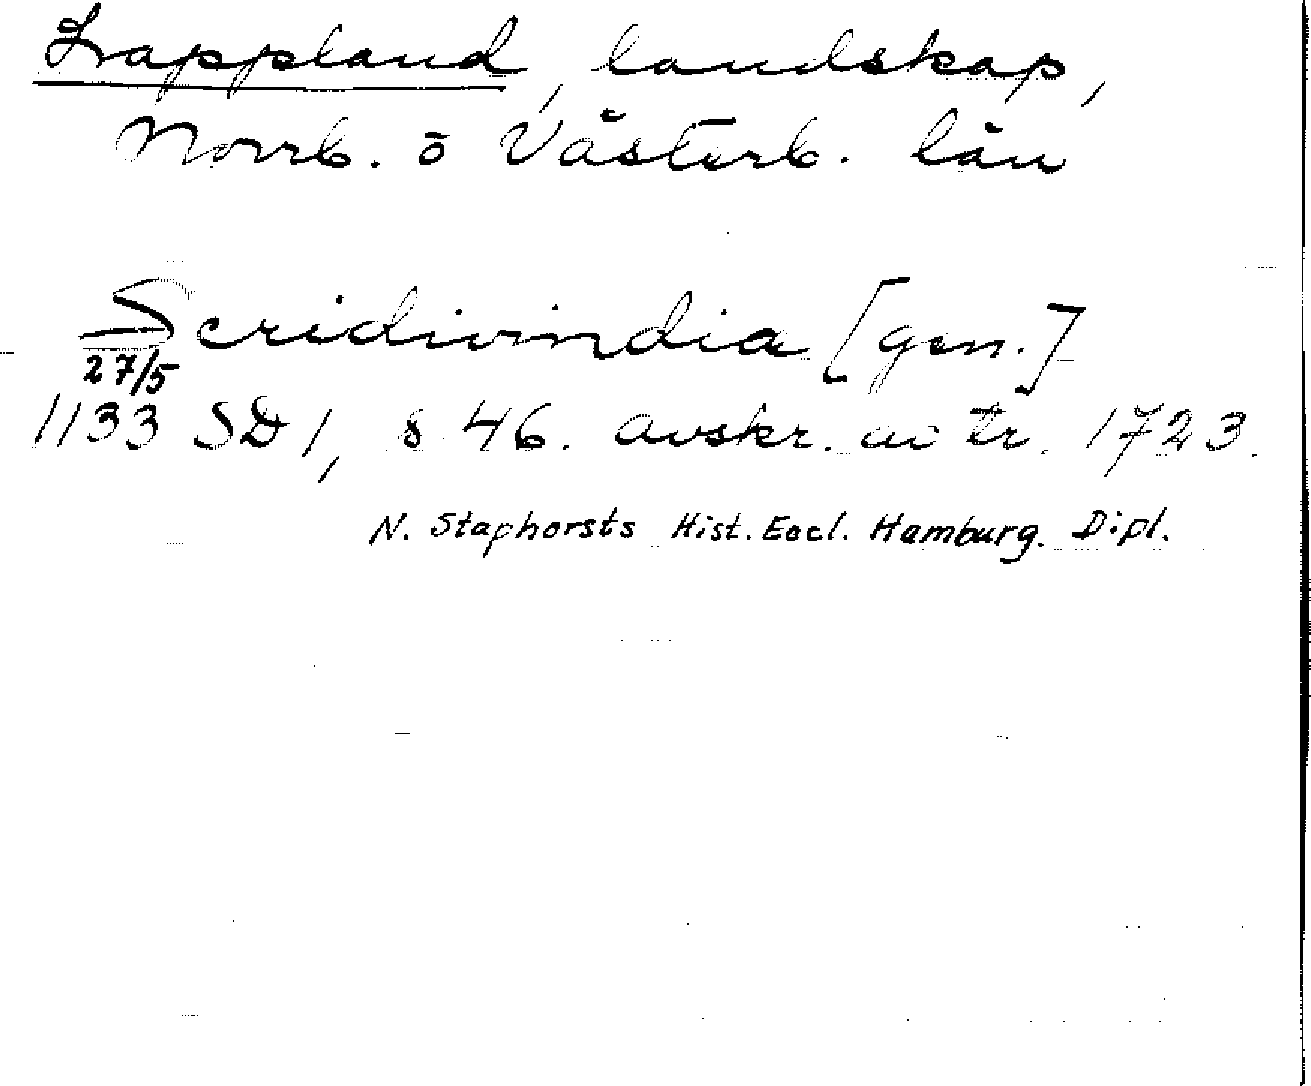 Lappland, landskap,
Norrb. o Västerb. län
Scridivindia [gen.]
27/5
1133 SD 1, s 46. avskr. av tr. 1723.
N. Staphorsts Hist. Eccl. Hamburg. Dipl.